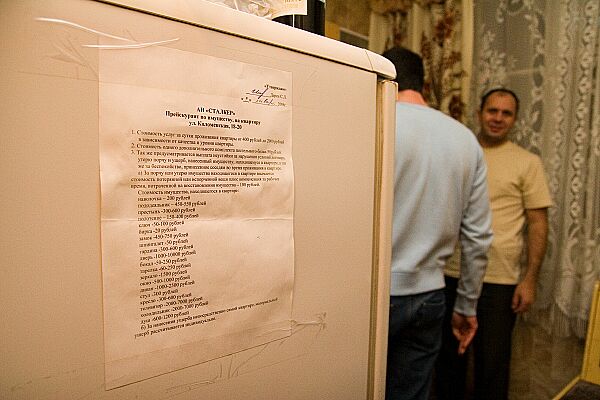 «Утверждаю»
АН «СТАЛКЕР»
Прейскурант по имуществу, на квартиру
ул. Коломенская, 18-20
1. Стоимость услуг за сутки проживания квартиры от 400 рублей до 2000 рублей
в зависимости от качества и уровня квартиры.
2. Стоимость одного дополнительного комплекта постельного белья 50 рублей
3. Так же предусматривается выплата неустойки за нарушения условий договора,
утерю порчу и ущерб, нанесенный имуществу, находящемуся в квартире, а так
же за беспокойство, принесенное соседям во время проживания в квартире.
а) За порчу или утерю имущества находящегося в квартире взимается
стоимость потерянной или испорченной вещи плюс компенсация за рабочее
время, потраченной на восстановления имущества – 100 рублей.
Стоимость имущества, находящегося в квартире:
наволочка – 200 рублей
пододеяльник – 450-550 рублей
простынь -300-600 рублей
полотенце – 150-400 рублей
ключ -50-100 рублей
бирка -20 рублей
замок -450-750 рублей
шпингалет -50 рублей
гардина -300-600 рублей
дверь -1000-10000 рублей
бокал -50-250 рублей
тарелка -60-250 рублей
зеркало -1500 рублей
окно -500-1000 рублей
диван -1000-2500 рублей
стул -300 рублей
кресло -300-600 рублей
телевизор -2000-7000 рублей
холодильник -2000-7000 рублей
душ -600-1200 рублей
б) За нанесения ущерба непосредственно самой квартире, материальный
ущерб рассчитывается индивидуально.